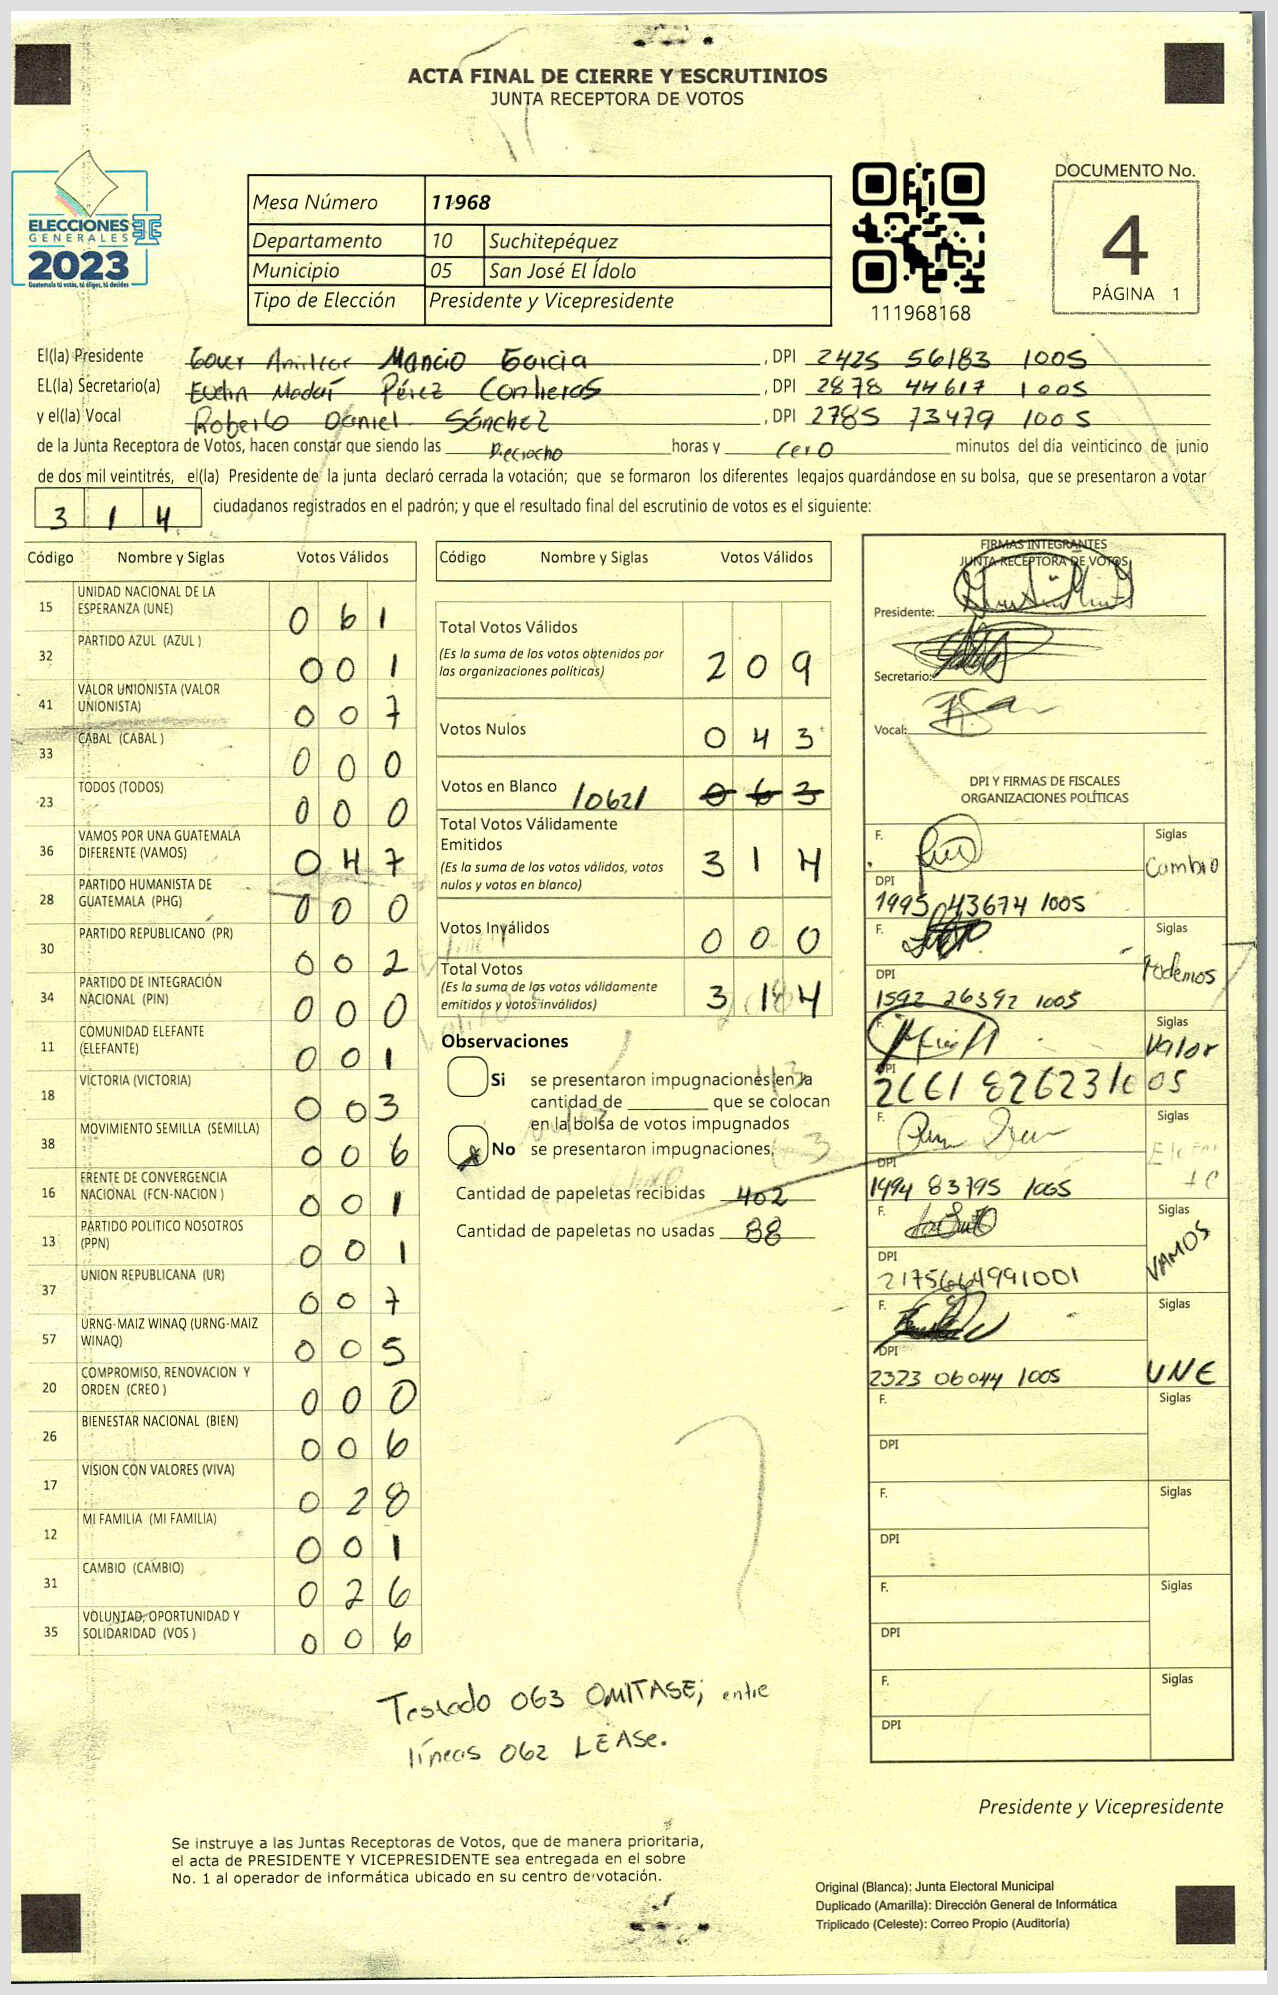 ACTA FINAL DE CIERRE Y ESCRUTINIOS
JUNTA RECEPTORA DE VOTOS
ELECCIONES
GENERALES
2023
Guatemala tú votas, tú eliges, tú decides
Mesa Número 11968
Departamento 10 Suchitepéquez
Municipio 05 San José El Ídolo
Tipo de Elección Presidente y Vicepresidente
111968168
DOCUMENTO No.
4
PÁGINA 1
El(la) Presidente Amilcar Mancio Garcia , DPI 2425 56183 1005
EL(la) Secretario(a) Evelin Madaí Pérez Contreras , DPI 2878 44617 1005
y el(la) Vocal Roberto Daniel Sánchez , DPI 2785 73479 1005
de la Junta Receptora de Votos, hacen constar que siendo las Dieciocho horas y cero minutos del día veinticinco de junio
de dos mil veintitrés, el(la) Presidente de la junta declaró cerrada la votación; que se formaron los diferentes legajos guardándose en su bolsa, que se presentaron a votar
3 1 4 ciudadanos registrados en el padrón; y que el resultado final del escrutinio de votos es el siguiente:
Código Nombre y Siglas Votos Válidos
15 UNIDAD NACIONAL DE LA ESPERANZA (UNE) 0 6 1
32 PARTIDO AZUL (AZUL ) 0 0 1
41 VALOR UNIONISTA (VALOR UNIONISTA) 0 0 7
33 CABAL (CABAL ) 0 0 0
23 TODOS (TODOS) 0 0 0
36 VAMOS POR UNA GUATEMALA DIFERENTE (VAMOS) 0 4 7
28 PARTIDO HUMANISTA DE GUATEMALA (PHG) 0 0 0
30 PARTIDO REPUBLICANO (PR) 0 0 2
34 PARTIDO DE INTEGRACIÓN NACIONAL (PIN) 0 0 0
11 COMUNIDAD ELEFANTE (ELEFANTE) 0 0 1
18 VICTORIA (VICTORIA) 0 0 3
38 MOVIMIENTO SEMILLA (SEMILLA) 0 0 6
16 FRENTE DE CONVERGENCIA NACIONAL (FCN-NACION ) 0 0 1
13 PARTIDO POLITICO NOSOTROS (PPN) 0 0 1
37 UNION REPUBLICANA (UR) 0 0 7
57 URNG-MAIZ WINAQ (URNG-MAIZ WINAQ) 0 0 5
20 COMPROMISO, RENOVACION Y ORDEN (CREO ) 0 0 0
26 BIENESTAR NACIONAL (BIEN) 0 0 6
17 VISION CON VALORES (VIVA) 0 2 8
12 MI FAMILIA (MI FAMILIA) 0 0 1
31 CAMBIO (CAMBIO) 0 2 6
35 VOLUNTAD, OPORTUNIDAD Y SOLIDARIDAD (VOS ) 0 0 6
Código Nombre y Siglas Votos Válidos
Total Votos Válidos 2 0 9
(Es la suma de los votos obtenidos por
las organizaciones políticas)
Votos Nulos 0 4 3
Votos en Blanco /062/ 0 6 3
Total Votos Válidamente
Emitidos 3 1 4
(Es la suma de los votos válidos, votos
nulos y votos en blanco)
Votos Inválidos 0 0 0
Total Votos 3 1 4
(Es la suma de los votos válidamente
emitidos y votos inválidos)
Observaciones
Si se presentaron impugnaciones en la
cantidad de ________ que se colocan
en la bolsa de votos impugnados
x No se presentaron impugnaciones.
Cantidad de papeletas recibidas 402
Cantidad de papeletas no usadas 88
FIRMAS INTEGRANTES
JUNTA RECEPTORA DE VOTOS
Presidente:
Secretario:
Vocal:
DPI Y FIRMAS DE FISCALES
ORGANIZACIONES POLÍTICAS
F. Siglas
Cambio
DPI
1995 43674 1005
F. Siglas
Podemos
DPI
1592 26392 1005
F. Siglas
Valor
DPI
2661 82623 1005
F. Siglas
DPI
1494 83795 1005
F. Siglas
VAMOS
DPI
2175664991001
F. Siglas
DPI
2323 06044 1005 UNE
F. Siglas
DPI
F. Siglas
DPI
F. Siglas
DPI
F. Siglas
DPI
Testado 063 OMITASE; entre
líneas 062 LEASE.
Presidente y Vicepresidente
Se instruye a las Juntas Receptoras de Votos, que de manera prioritaria,
el acta de PRESIDENTE Y VICEPRESIDENTE sea entregada en el sobre
No. 1 al operador de informática ubicado en su centro de votación.
Original (Blanca): Junta Electoral Municipal
Duplicado (Amarilla): Dirección General de Informática
Triplicado (Celeste): Correo Propio (Auditoría)